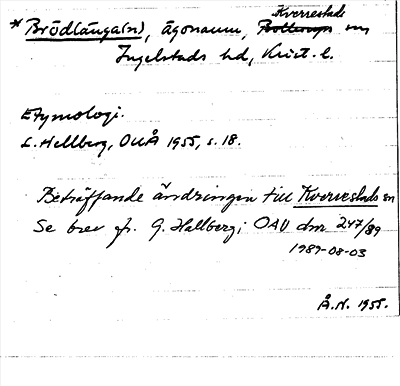 Kverrestads
* Brödlänga(n), ägonamn, Bollerups sn
Ingelstads hd, Krist. l.
Etymologi.
L. Hellberg, OUÅ 1955, s. 18.
Beträffande ändringen till Kverrestads sn
Se brev fr. G. Hallberg; OAU dnr 247/89
1989-08-03
Å.N. 1955.